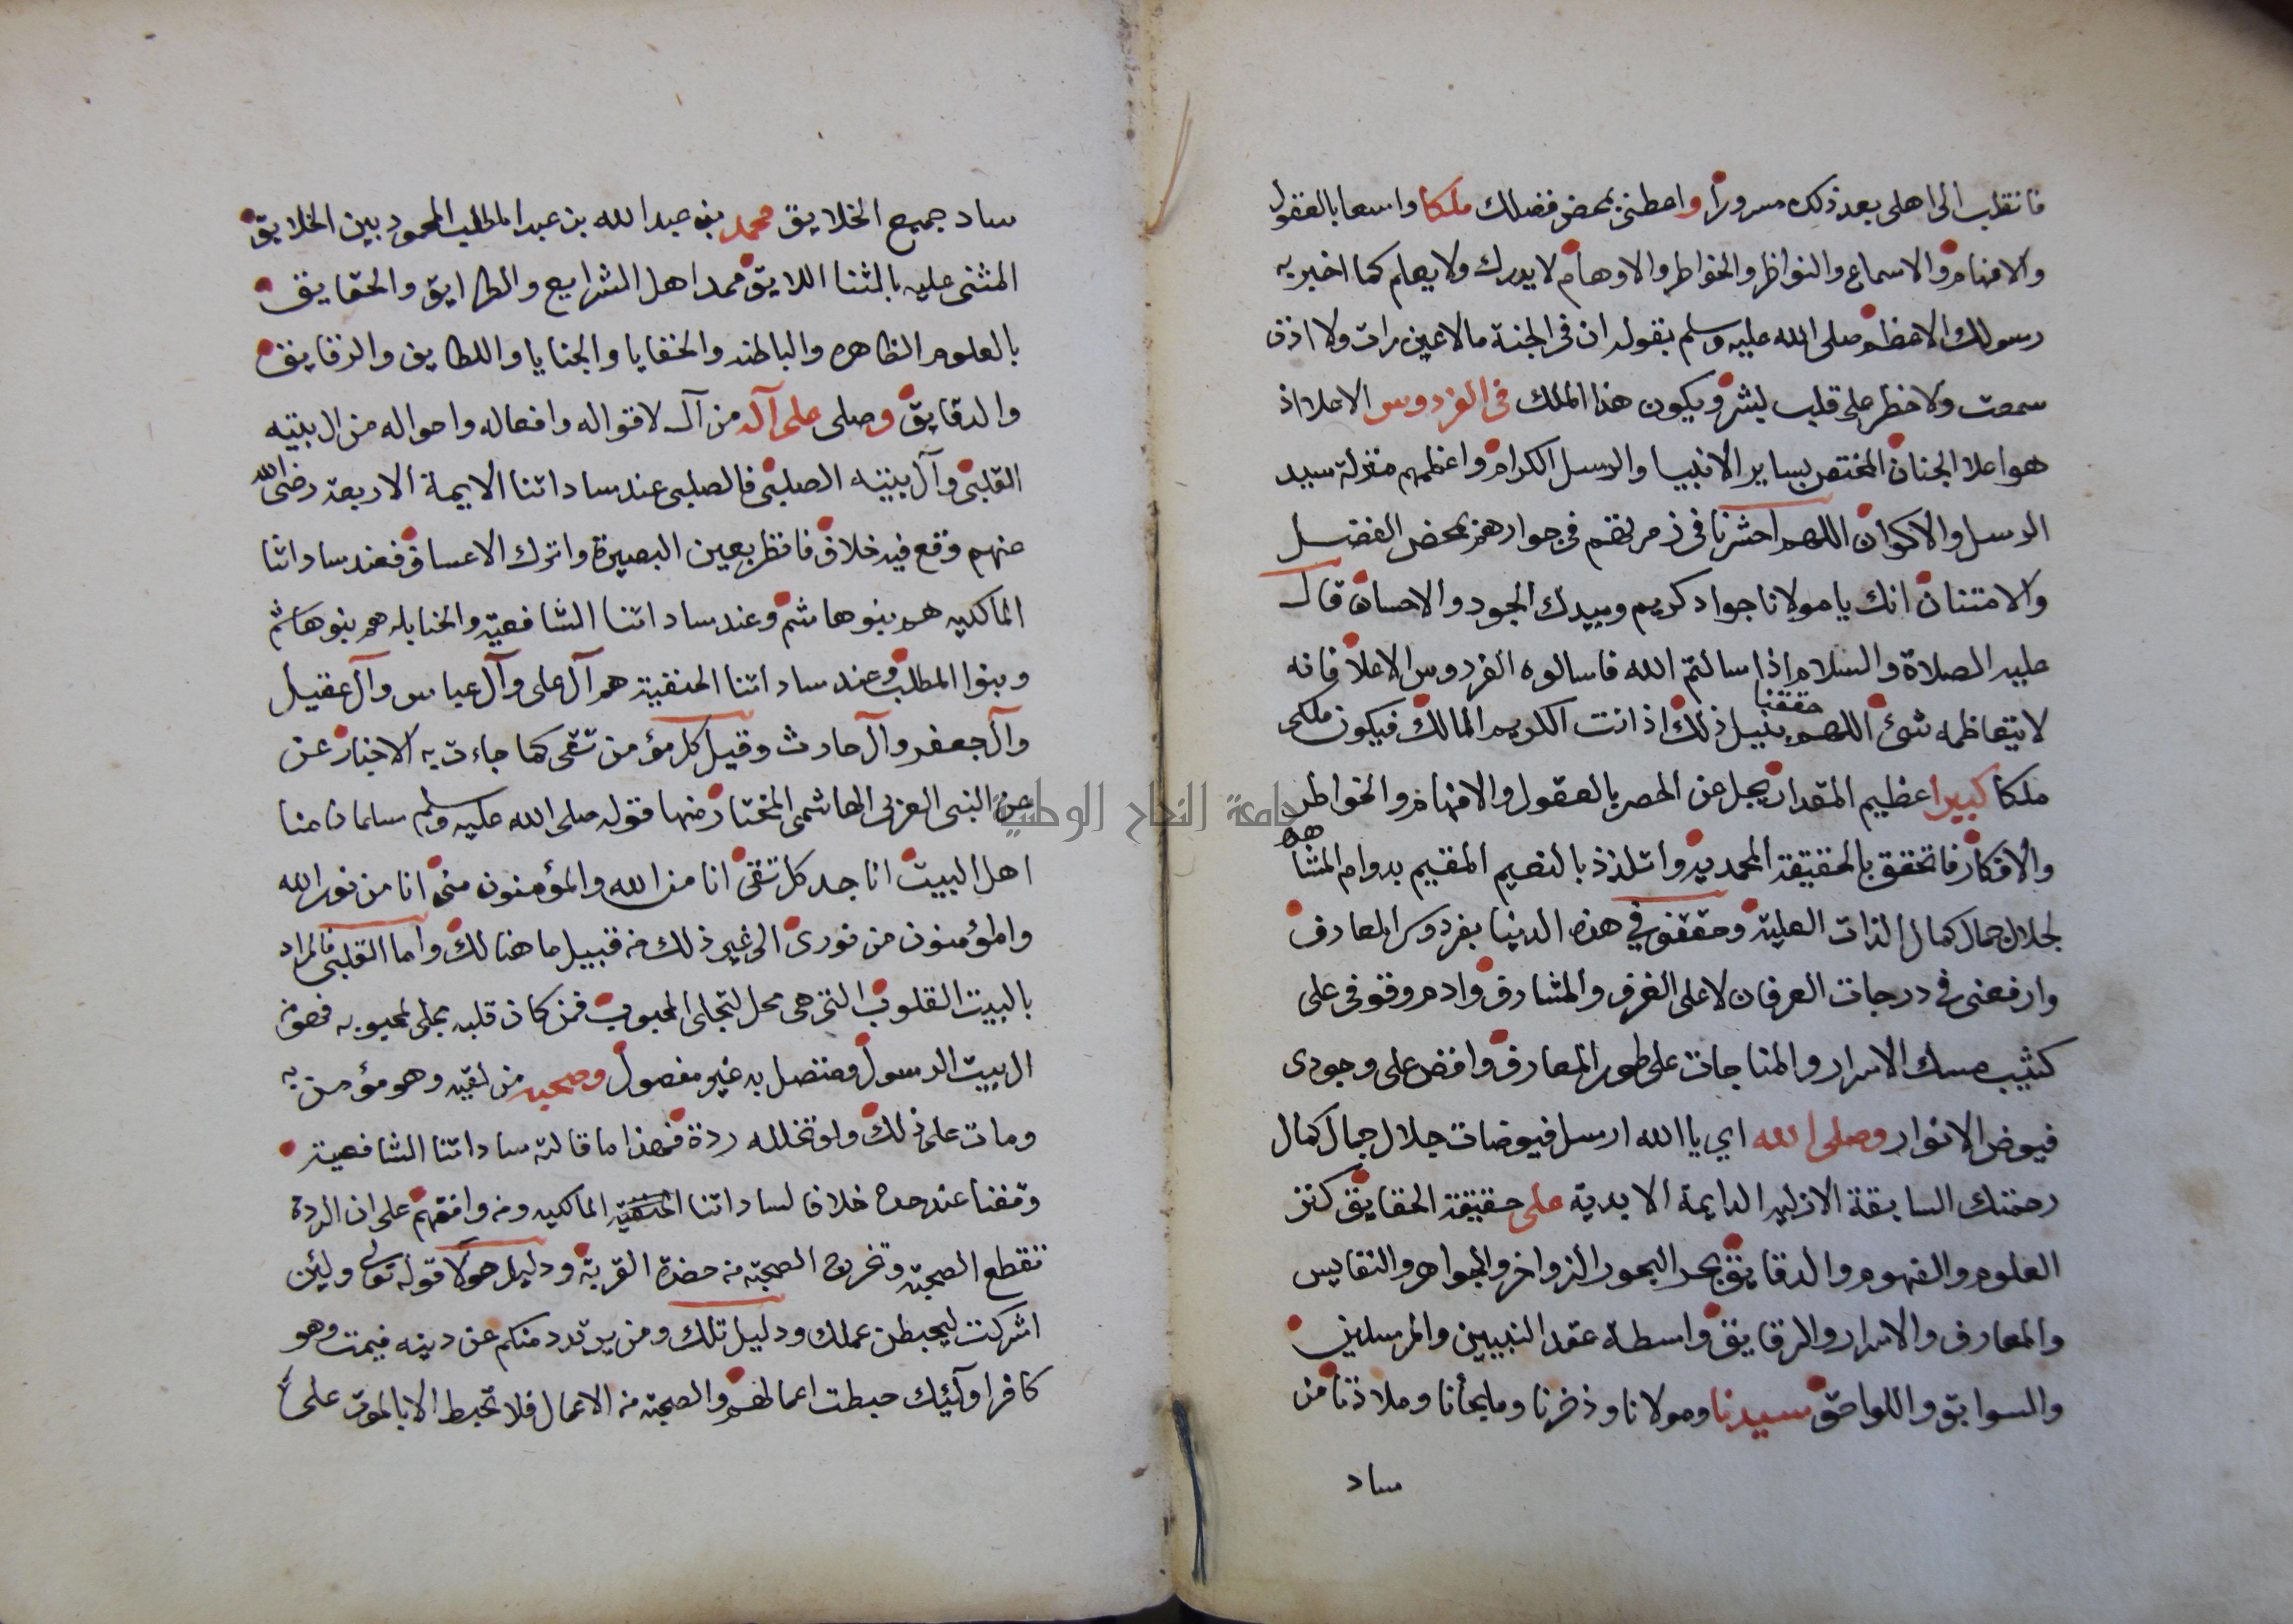 فانقلب الى اهلى بعد ذلك مسرورا واعطنى بمحض فضلك ملكا واسعا بالعقول
والافهام والاسماع والنواظر والخواطر والاوهام لا يدرك ولا يعلم كما اخبر به
رسولك الاعظم صلى الله عليه وسلم بقوله ان فى الجنة ما لا عين رات ولا اذن
سمعت ولا خطر على قلب بشر ويكون هذا الملك فى الفردوس الاعلا اذ
هو اعلا الجنان المختص بساير الانبيا والرسل الكرام واعظمهم منزلة سيد
الرسل والاكوان اللهم احشرنا فى زمرتهم فى جوارهم بمحض الفضل
والامتنان انك يا مولانا جواد كريم وبيدك الجود والاحسان قال
عليه الصلاة والسلام اذا سالتم الله فاسالوه الفردوس الاعلا فانه
لا يتعاظمه شئ اللهم حققنا بنيل ذلك اذ انت الكريم المالك فيكون ملكى
ملكا كبيرا عظيم المقدار يجل عن الحصر بالعقول والافهام والخواطر
والافكار فاتحقق بالحقيقة المحمدية واتلذذ بالنعيم المقيم بدوام المشاهده
لجلال جمال كمال الذات العلية وحققنى في هذه الدنيا بفردوس المعارف
وارفعنى فى درجات العرفان لاعلى الغرف والمشارف وادم وقوفى على
كثيب مسك الاسرار والمناجات على طور المعارف وافض على وجودى
فيوض الانوار وصلى الله اي يا الله ارسل فيوضات جلال جمال كمال
رحمتك السابقة الازليه الدايمة الابدية على حقيقة الحقايق كنز
العلوم والفهوم والدقايق بحر البحور الزواخر والجواهر والنفايس
والمعارف والاسرار والرقايق واسطة عقد النبيين والمرسلين
والسوابق واللواحق سيدنا ومولانا وذخرنا وملجأنا وملاذنا من
ساد
ساد جميع الخلايق محمد بن عبد الله بن عبد المطلب المحمود بين الخلايق
المثنى عليه بالثنا اللايق ممد اهل الشرايع والطرايق والحقايق
بالعلوم الظاهره والباطنه والخفايا والجنايا واللطايف والرقايق
والدقايق وصلى على آله من آل لاقواله وافعاله واحواله من ال بيته
القلبى وآل بيته الصلبى فالصلبى عند ساداتنا الايمة الاربعة رضى الله
عنهم وقع فيه خلاف فانظر بعين البصيرة واترك الاعساف فعند ساداتنا
المالكيه هم بنو هاشم وعند ساداتنا الشافعية والحنابله هم بنو هاشم
وبنوا المطلب وعند ساداتنا الحنفية هم آل على وآل عباس وآل عقيل
وآل جعفر وآل حارث وقيل كل مؤمن تقى كما جاءت به الاخبار عن
عن النبى العربى الهاشمى المختار منها قوله صلى الله عليه وسلم سلمان منا
اهل البيت انا جد كل تقى انا من الله والمؤمنون منى انا من نور الله
والمؤمنون من نورى الى غير ذلك من قبيل ما هنالك واما القلبى فالمراد
بالبيت القلوب التى هى محل لتجلى المحبوب فمن كان قلبه مجلى لمحبوبه فهو من
ال بيت الرسول ومتصل به غير مفصول وصحبه من لقيه وهو مؤمن به
ومات على ذلك ولو تخلله ردة فهذا ما قالته ساداتنا الشافعية
وقفنا عند حده خلافا لساداتنا الحنفية المالكيه ومن وافقهم على ان الردة
تقطع الصحبة وتخرج الصحبة من حضرة القربة ودليل هولا قوله تعالى ولئن
اشركت ليحبطن عملك ودليل تلك ومن يرتدد منكم عن دينه فيمت وهو
كافر اولئيك حبطت اعمالهم والصحبة من الاعمال فلا تحبط الا بالموت على
جامعة النجاح الوطنية